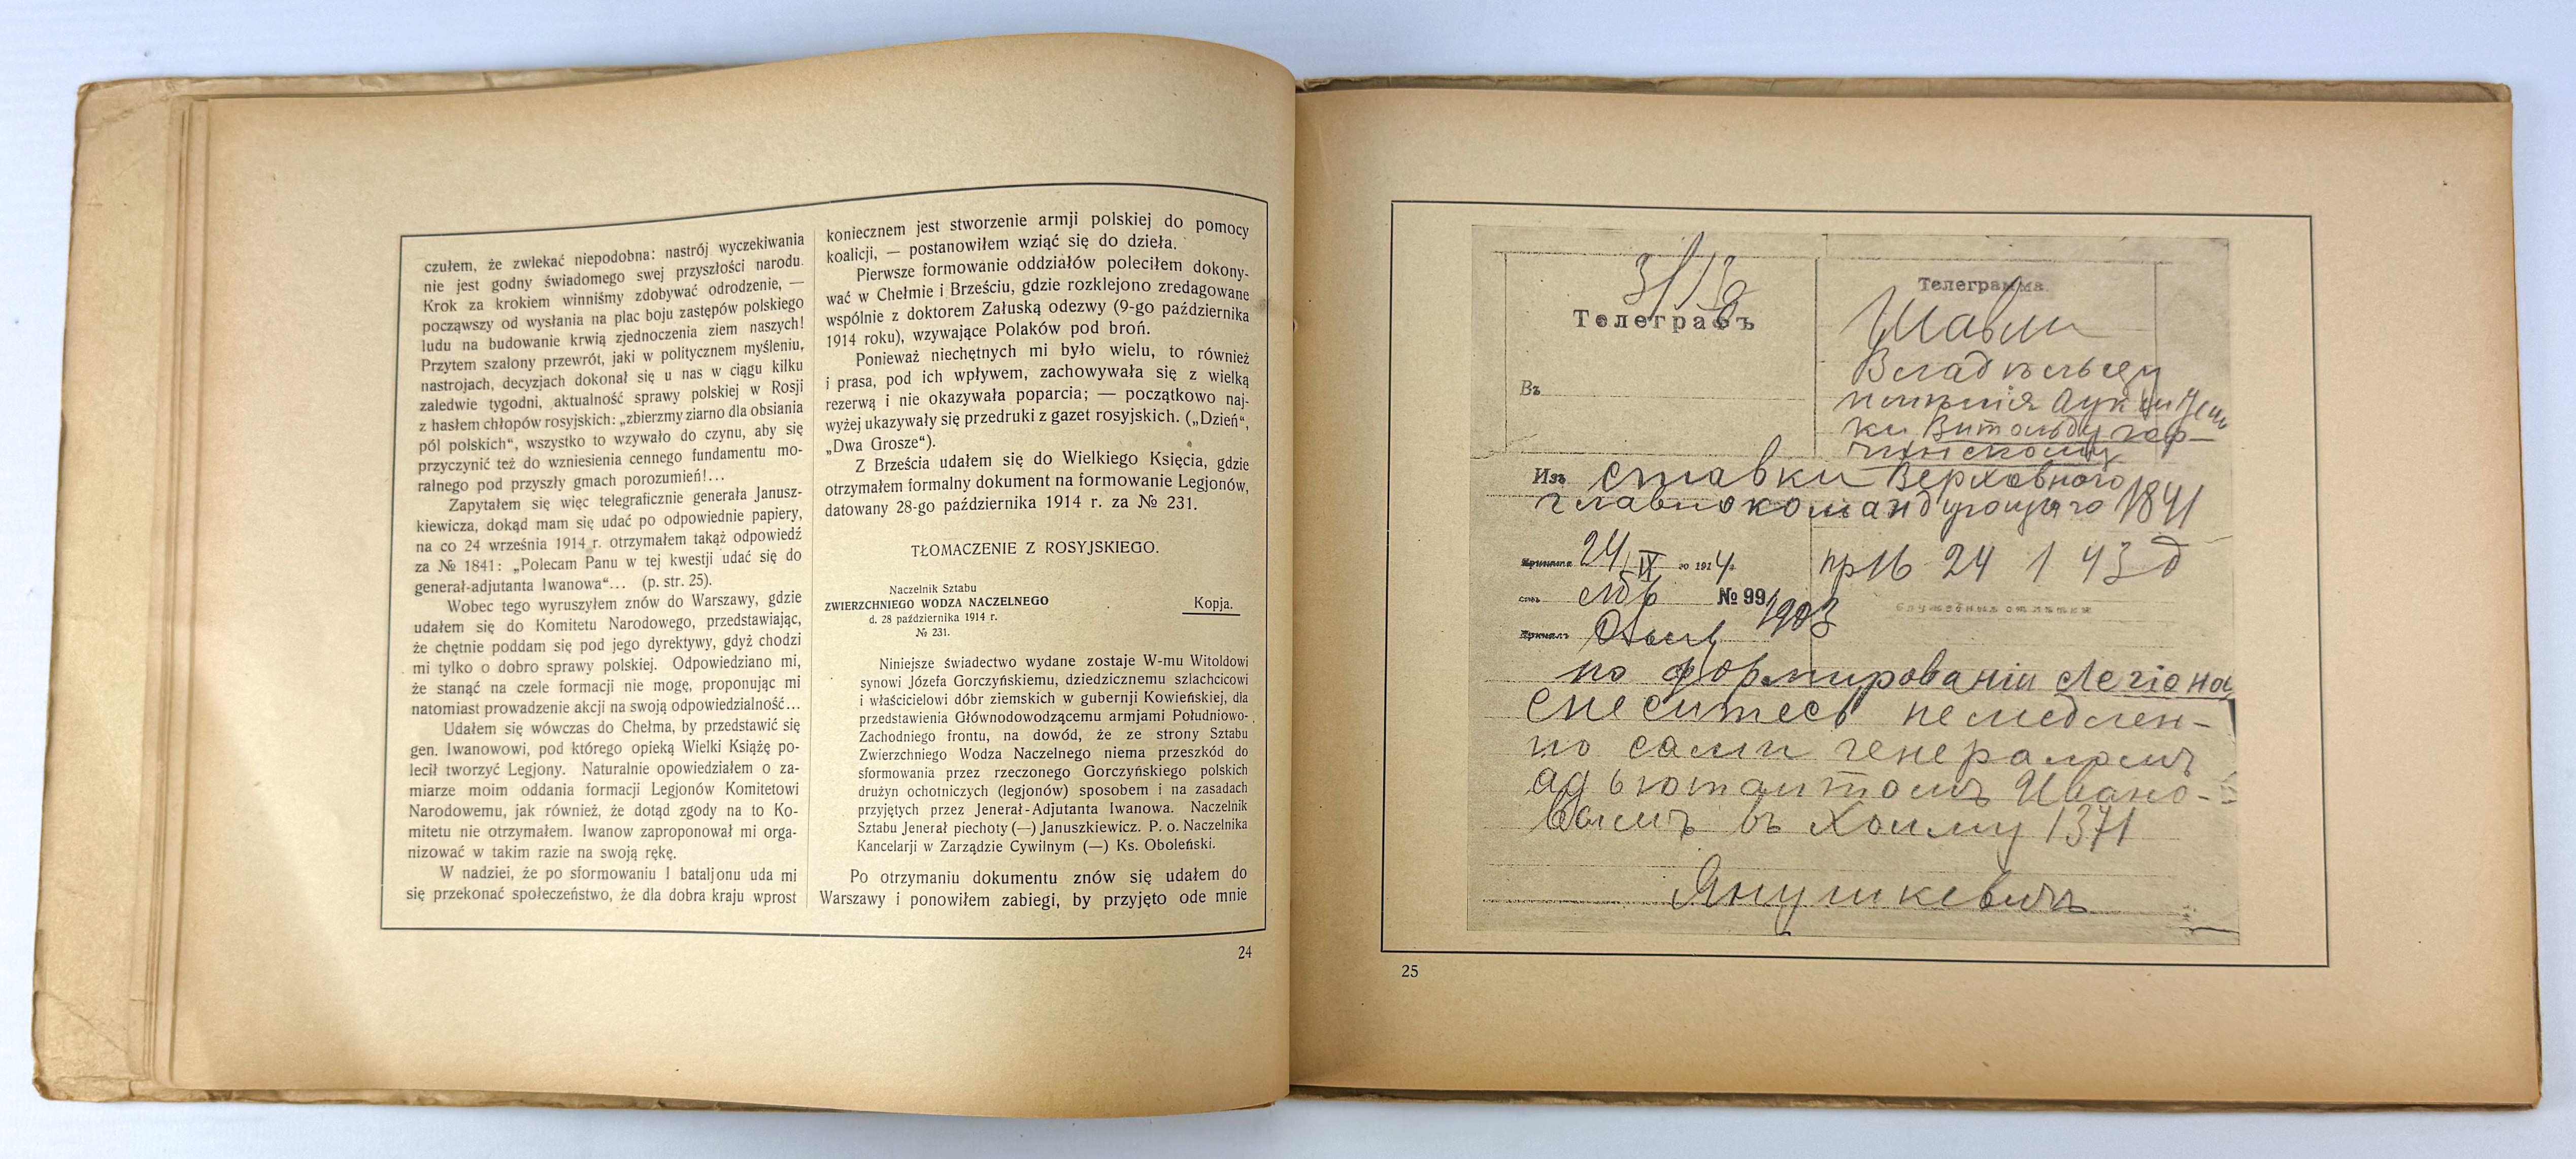 czułem, że zwlekać niepodobna: nastrój wyczekiwania
nie jest godny świadomego swej przyszłości narodu.
Krok za krokiem winniśmy zdobywać odrodzenie, —
począwszy od wysłania na plac boju zastępów polskiego
ludu na budowanie krwią zjednoczenia ziem naszych!
Przytem szalony przewrót, jaki w politycznem myśleniu,
nastrojach, decyzjach dokonał się u nas w ciągu kilku
zaledwie tygodni, aktualność sprawy polskiej w Rosji
z hasłem chłopów rosyjskich: „zbierzmy ziarno dla obsiania
pól polskich“, wszystko to wzywało do czynu, aby się
przyczynić też do wzniesienia cennego fundamentu mo-
ralnego pod przyszły gmach porozumień!...
Zapytałem się więc telegraficznie generała Janusz-
kiewicza, dokąd mam się udać po odpowiednie papiery,
na co 24 września 1914 r. otrzymałem takąż odpowiedź
za № 1841: „Polecam Panu w tej kwestji udać się do
generał-adjutanta Iwanowa“... (p. str. 25).
Wobec tego wyruszyłem znów do Warszawy, gdzie
udałem się do Komitetu Narodowego, przedstawiając,
że chętnie poddam się pod jego dyrektywy, gdyż chodzi
mi tylko o dobro sprawy polskiej. Odpowiedziano mi,
że stanąć na czele formacji nie mogę, proponując mi
natomiast prowadzenie akcji na swoją odpowiedzialność...
Udałem się wówczas do Chełma, by przedstawić się
gen. Iwanowowi, pod którego opieką Wielki Książę po-
lecił tworzyć Legjony. Naturalnie opowiedziałem o za-
miarze moim oddania formacji Legjonów Komitetowi
Narodowemu, jak również, że dotąd zgody na to Ko-
mitetu nie otrzymałem. Iwanow zaproponował mi orga-
nizować w takim razie na swoją rękę.
W nadziei, że po sformowaniu I bataljonu uda mi
się przekonać społeczeństwo, że dla dobra kraju wprost
koniecznem jest stworzenie armji polskiej do pomocy
koalicji, — postanowiłem wziąć się do dzieła.
Pierwsze formowanie oddziałów poleciłem dokony-
wać w Chełmie i Brześciu, gdzie rozklejono zredagowane
wspólnie z doktorem Załuską odezwy (9-go października
1914 roku), wzywające Polaków pod broń.
Ponieważ niechętnych mi było wielu, to również
i prasa, pod ich wpływem, zachowywała się z wielką
rezerwą i nie okazywała poparcia; — początkowo naj-
wyżej ukazywały się przedruki z gazet rosyjskich. („Dzień“,
„Dwa Grosze“).
Z Brześcia udałem się do Wielkiego Księcia, gdzie
otrzymałem formalny dokument na formowanie Legjonów,
datowany 28-go października 1914 r. za № 231.
TŁOMACZENIE Z ROSYJSKIEGO.
Naczelnik Sztabu
ZWIERZCHNIEGO WODZA NACZELNEGO
d. 28 października 1914 r.
№ 231.
Kopja.
Niniejsze świadectwo wydane zostaje W-mu Witoldowi
synowi Józefa Gorczyńskiemu, dziedzicznemu szlachcicowi
i właścicielowi dóbr ziemskich w gubernji Kowieńskiej, dla
przedstawienia Głównodowodzącemu armjami Południowo-
Zachodniego frontu, na dowód, że ze strony Sztabu
Zwierzchniego Wodza Naczelnego niema przeszkód do
sformowania przez rzeczonego Gorczyńskiego polskich
drużyn ochotniczych (legjonów) sposobem i na zasadach
przyjętych przez Jenerał-Adjutanta Iwanowa. Naczelnik
Sztabu Jenerał piechoty (—) Januszkiewicz. P. o. Naczelnika
Kancelarji w Zarządzie Cywilnym (—) Ks. Oboleński.
Po otrzymaniu dokumentu znów się udałem do
Warszawy i ponowiłem zabiegi, by przyjęto ode mnie
24
Телеграфъ
Въ
Телеграмма
Шавли
Владѣльцу
имѣнія
ки Витольду Гор-
чинскому
Изъ ставки Верховного
главнокомандующаго 1841
24/IX го 1914 г.
пр 16 24 1 43 д
№ 99
1903
Служебныя отмѣтки
по формированіи Легіона
снеситесь немедлен-
но сами генераломъ
адъютантомъ Ивано-
вымъ въ Холму 1371
Янушкевичъ
25